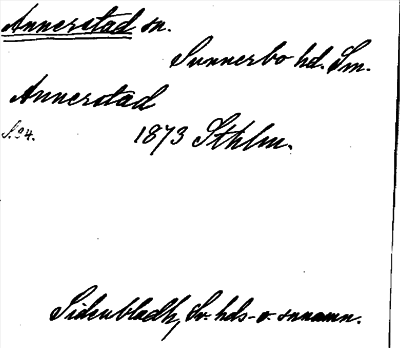 Annerstad sn.
Sunnerbo hd. Sm.
Annerstad
S. 94. 1873 Sthlm.
Sidenbladh, Sv. hds- o. snnamn.